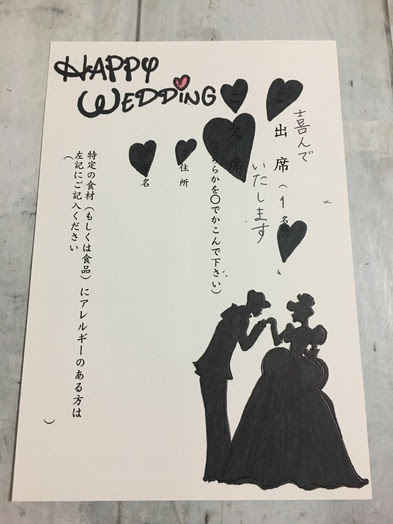 HAPPY
WEDDING
喜んで
ご出席(1名
いたします
ご欠席
ちらかを〇でかこんで下さい)
住所
名
特定の食材(もしくは食品)にアレルギーのある方は
左記にご記入ください
( )